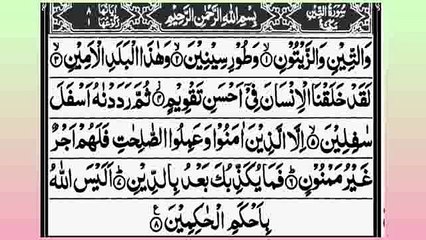 سُوْرَةُ التِّيْنِ مَكِّيَّةٌ بِسْمِ اللهِ الرَّحْمٰنِ الرَّحِيْمِ
وَالتِّيْنِ وَالزَّيْتُوْنِ ۝۱ وَطُوْرِ سِيْنِيْنَ ۝۲ وَهٰذَا الْبَلَدِ الْاَمِيْنِ ۝۳
لَقَدْ خَلَقْنَا الْاِنْسَانَ فِيْٓ اَحْسَنِ تَقْوِيْمٍ ۝۴ ثُمَّ رَدَدْنٰهُ اَسْفَلَ
سٰفِلِيْنَ ۝۵ اِلَّا الَّذِيْنَ اٰمَنُوْا وَعَمِلُوا الصّٰلِحٰتِ فَلَهُمْ اَجْرٌ
غَيْرُ مَمْنُوْنٍ ۝۶ فَمَا يُكَذِّبُكَ بَعْدُ بِالدِّيْنِ ۝۷ اَلَيْسَ اللهُ
بِاَحْكَمِ الْحٰكِمِيْنَ ۝۸